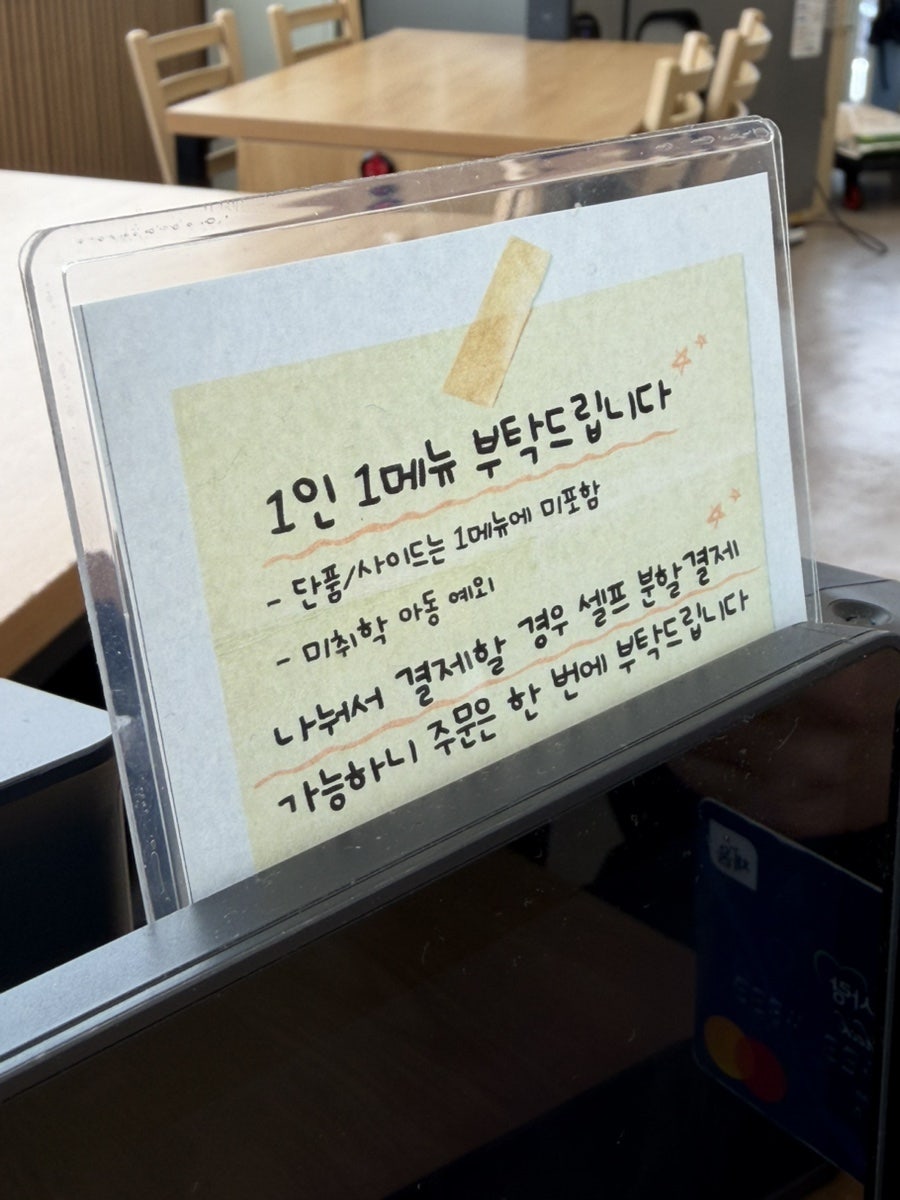 1인 1메뉴 부탁드립니다
- 단품/사이드는 1메뉴에 미포함
- 미취학 아동 예외
나눠서 결제할 경우 셀프 분할결제
가능하니 주문은 한 번에 부탁드립니다